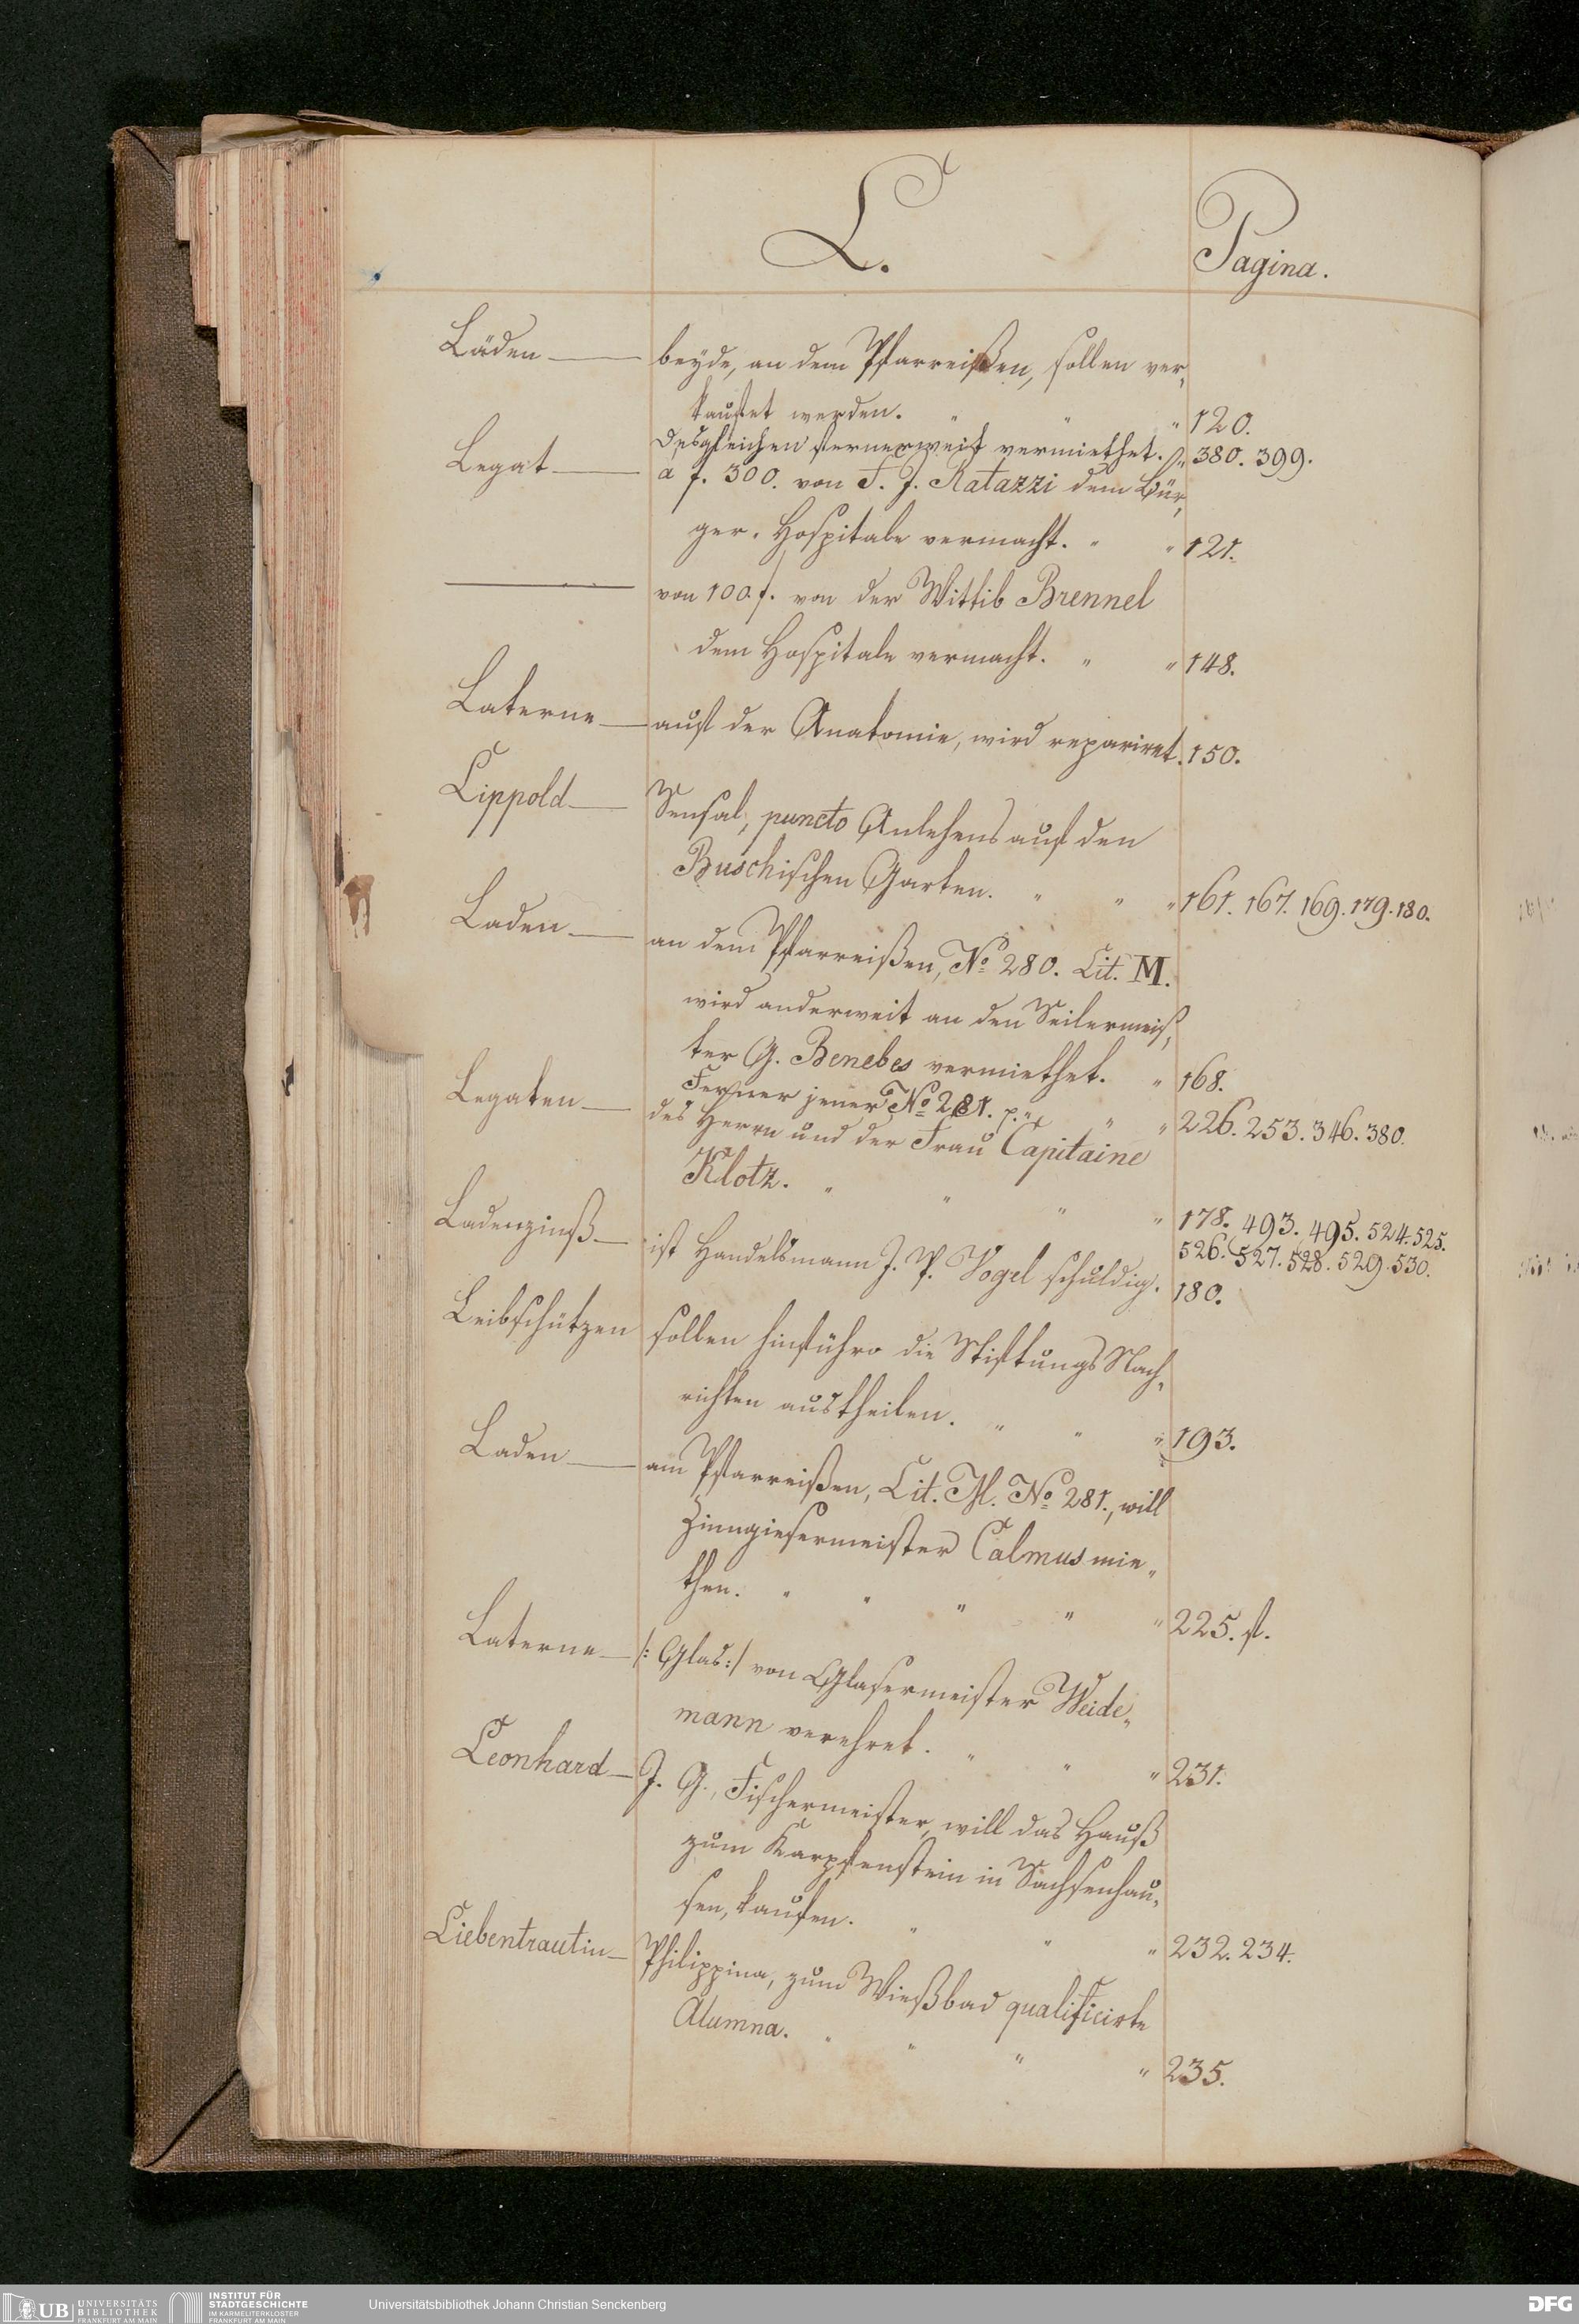 L.
Pagina.
Läden — beyde, an dem Pfarreißen, sollen ver-
kaufet werden. " " " 120.
Desgleichen fernerweit vermiethet. p. " 380. 399.
Legat — a f. 300. von F. J. Ratazzi dem Bür-
ger-Hospitale vermacht. " " 121.
— von 100 f. von der Wittib Brennel
dem Hospitale vermacht. " " 148.
Laterne — auf der Anatomie, wird repariret. 150.
Lippold — Sensal, puncto Anlehens auf den
Buschischen Garten. " " " 161. 167. 169. 179. 180.
Laden — an dem Pfarreißen, No 280. Lit. M.
wird anderweit an den Seilermeis-
ter G. Benebes vermiethet. " 168.
Ferner jener No 281. p. " " " 226. 253. 346. 380.
Legaten — des Herrn und der Frau Capitaine
Klotz. " " " " 178. 493. 495. 524. 525.
526. 527. 528. 529. 530.
Ladenzinß — ist Handelsmann J. P. Vogel schuldig. 180.
Leibschützen sollen hinführo die Stiftungs Nach-
richten austheilen. " " " 193.
Laden — am Pfarreißen, Lit. M. No 281., will
Zinngiesermeister Calmus mie-
then. " " " " " 225. f.
Laterne — /: Glas :/ von Glasermeister Weide-
mann verehret. " " " 231.
Leonhard — J. G., Fischermeister, will das Hauß
zum Karpfenstein in Sachsenhau-
sen, kaufen. " " " 232. 234.
Liebentrautin — Philippina, zum Wießbad qualificirte
Alumna. " " " " 235.
UB UNIVERSITÄTS
BIBLIOTHEK
FRANKFURT AM MAIN
INSTITUT FÜR
STADTGESCHICHTE
IM KARMELITERKLOSTER
FRANKFURT AM MAIN
Universitätsbibliothek Johann Christian Senckenberg
DFG